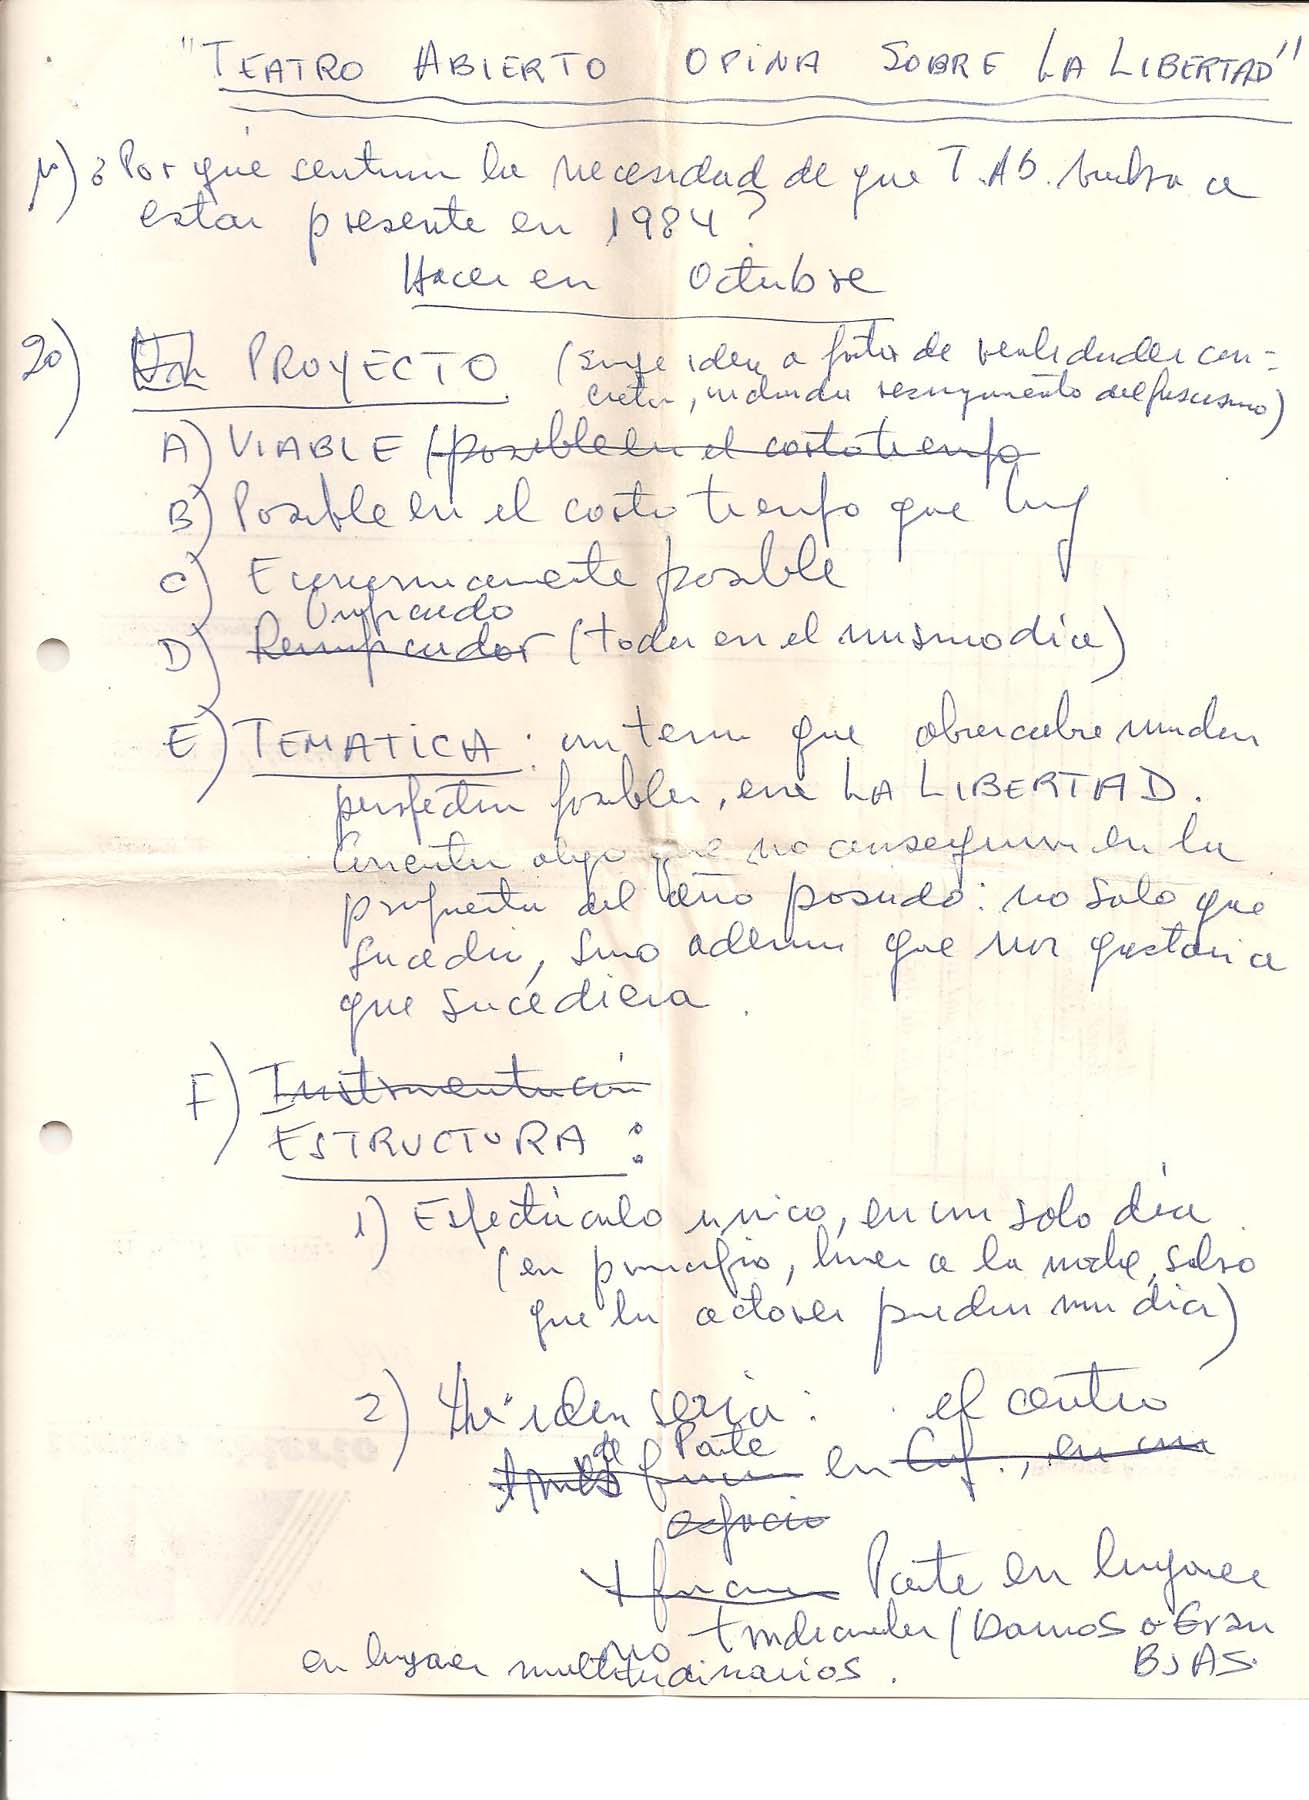 "TEATRO ABIERTO OPINA SOBRE LA LIBERTAD"
1º) ¿Por qué sentimos la necesidad de que T. AB. vuelva a
estar presente en 1984?
Hacer en Octubre
2º) Un PROYECTO (surge idea a partir de realidades con=
cretas, resurgimiento del fascismo)
A) VIABLE (posible en el corto tiempo
B) Posible en el corto tiempo que hay
C) Economicamente posible
Unificando
D) (todos en el mismo dia)
E) TEMATICA: un tema que
posibles, LA LIBERTAD.
algo que no conseguimos en la
propuesta del año pasado: no solo que
sucedio, sino ademas que nos gustaria
que sucediera.
F) Instrumentación
ESTRUCTURA:
1) Espectáculo unico, en un solo día
(en principio, lunes a la noche, salvo
que los actores puedan un dia)
2) idea seria: el centro
Parte en
espacio
Parte en lugares
(Barrios o Gran
en lugares no multitudinarios. BS AS.